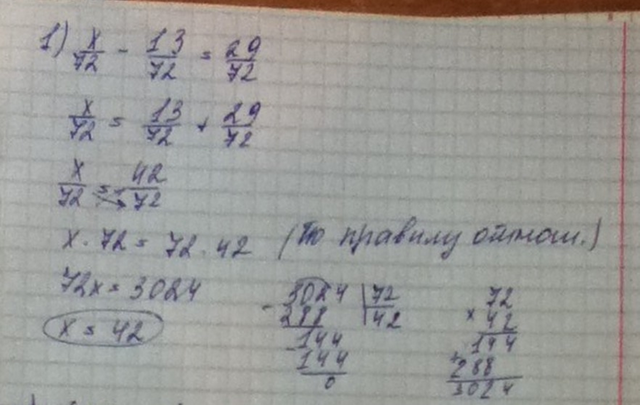 1) x/72 - 13/72 = 29/72
x/72 = 13/72 + 29/72
x/72 = 42/72
x · 72 = 72 · 42 (По правилу отнош.)
72x = 3024
x = 42
3024 | 72
- 288 | 42
- 144
144
0
72
x 42
144
+ 288
3024